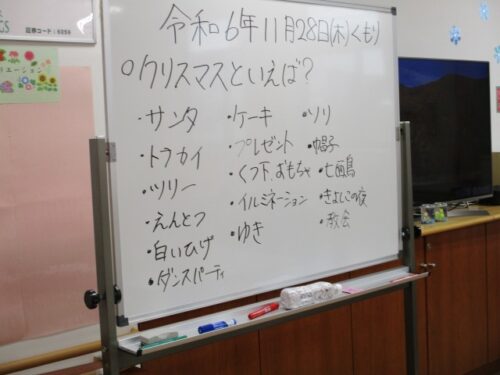 令和6年11月28日(木)くもり
○クリスマスといえば?
・サンタ
・トナカイ
・ツリー
・えんとつ
・白いひげ
・ダンスパーティ
・ケーキ
・プレゼント
・くつ下、おもちゃ
・イルミネーション
・ゆき
・ソリ
・帽子
・七面鳥
・きよしこの夜
・教会
証券コード:6059